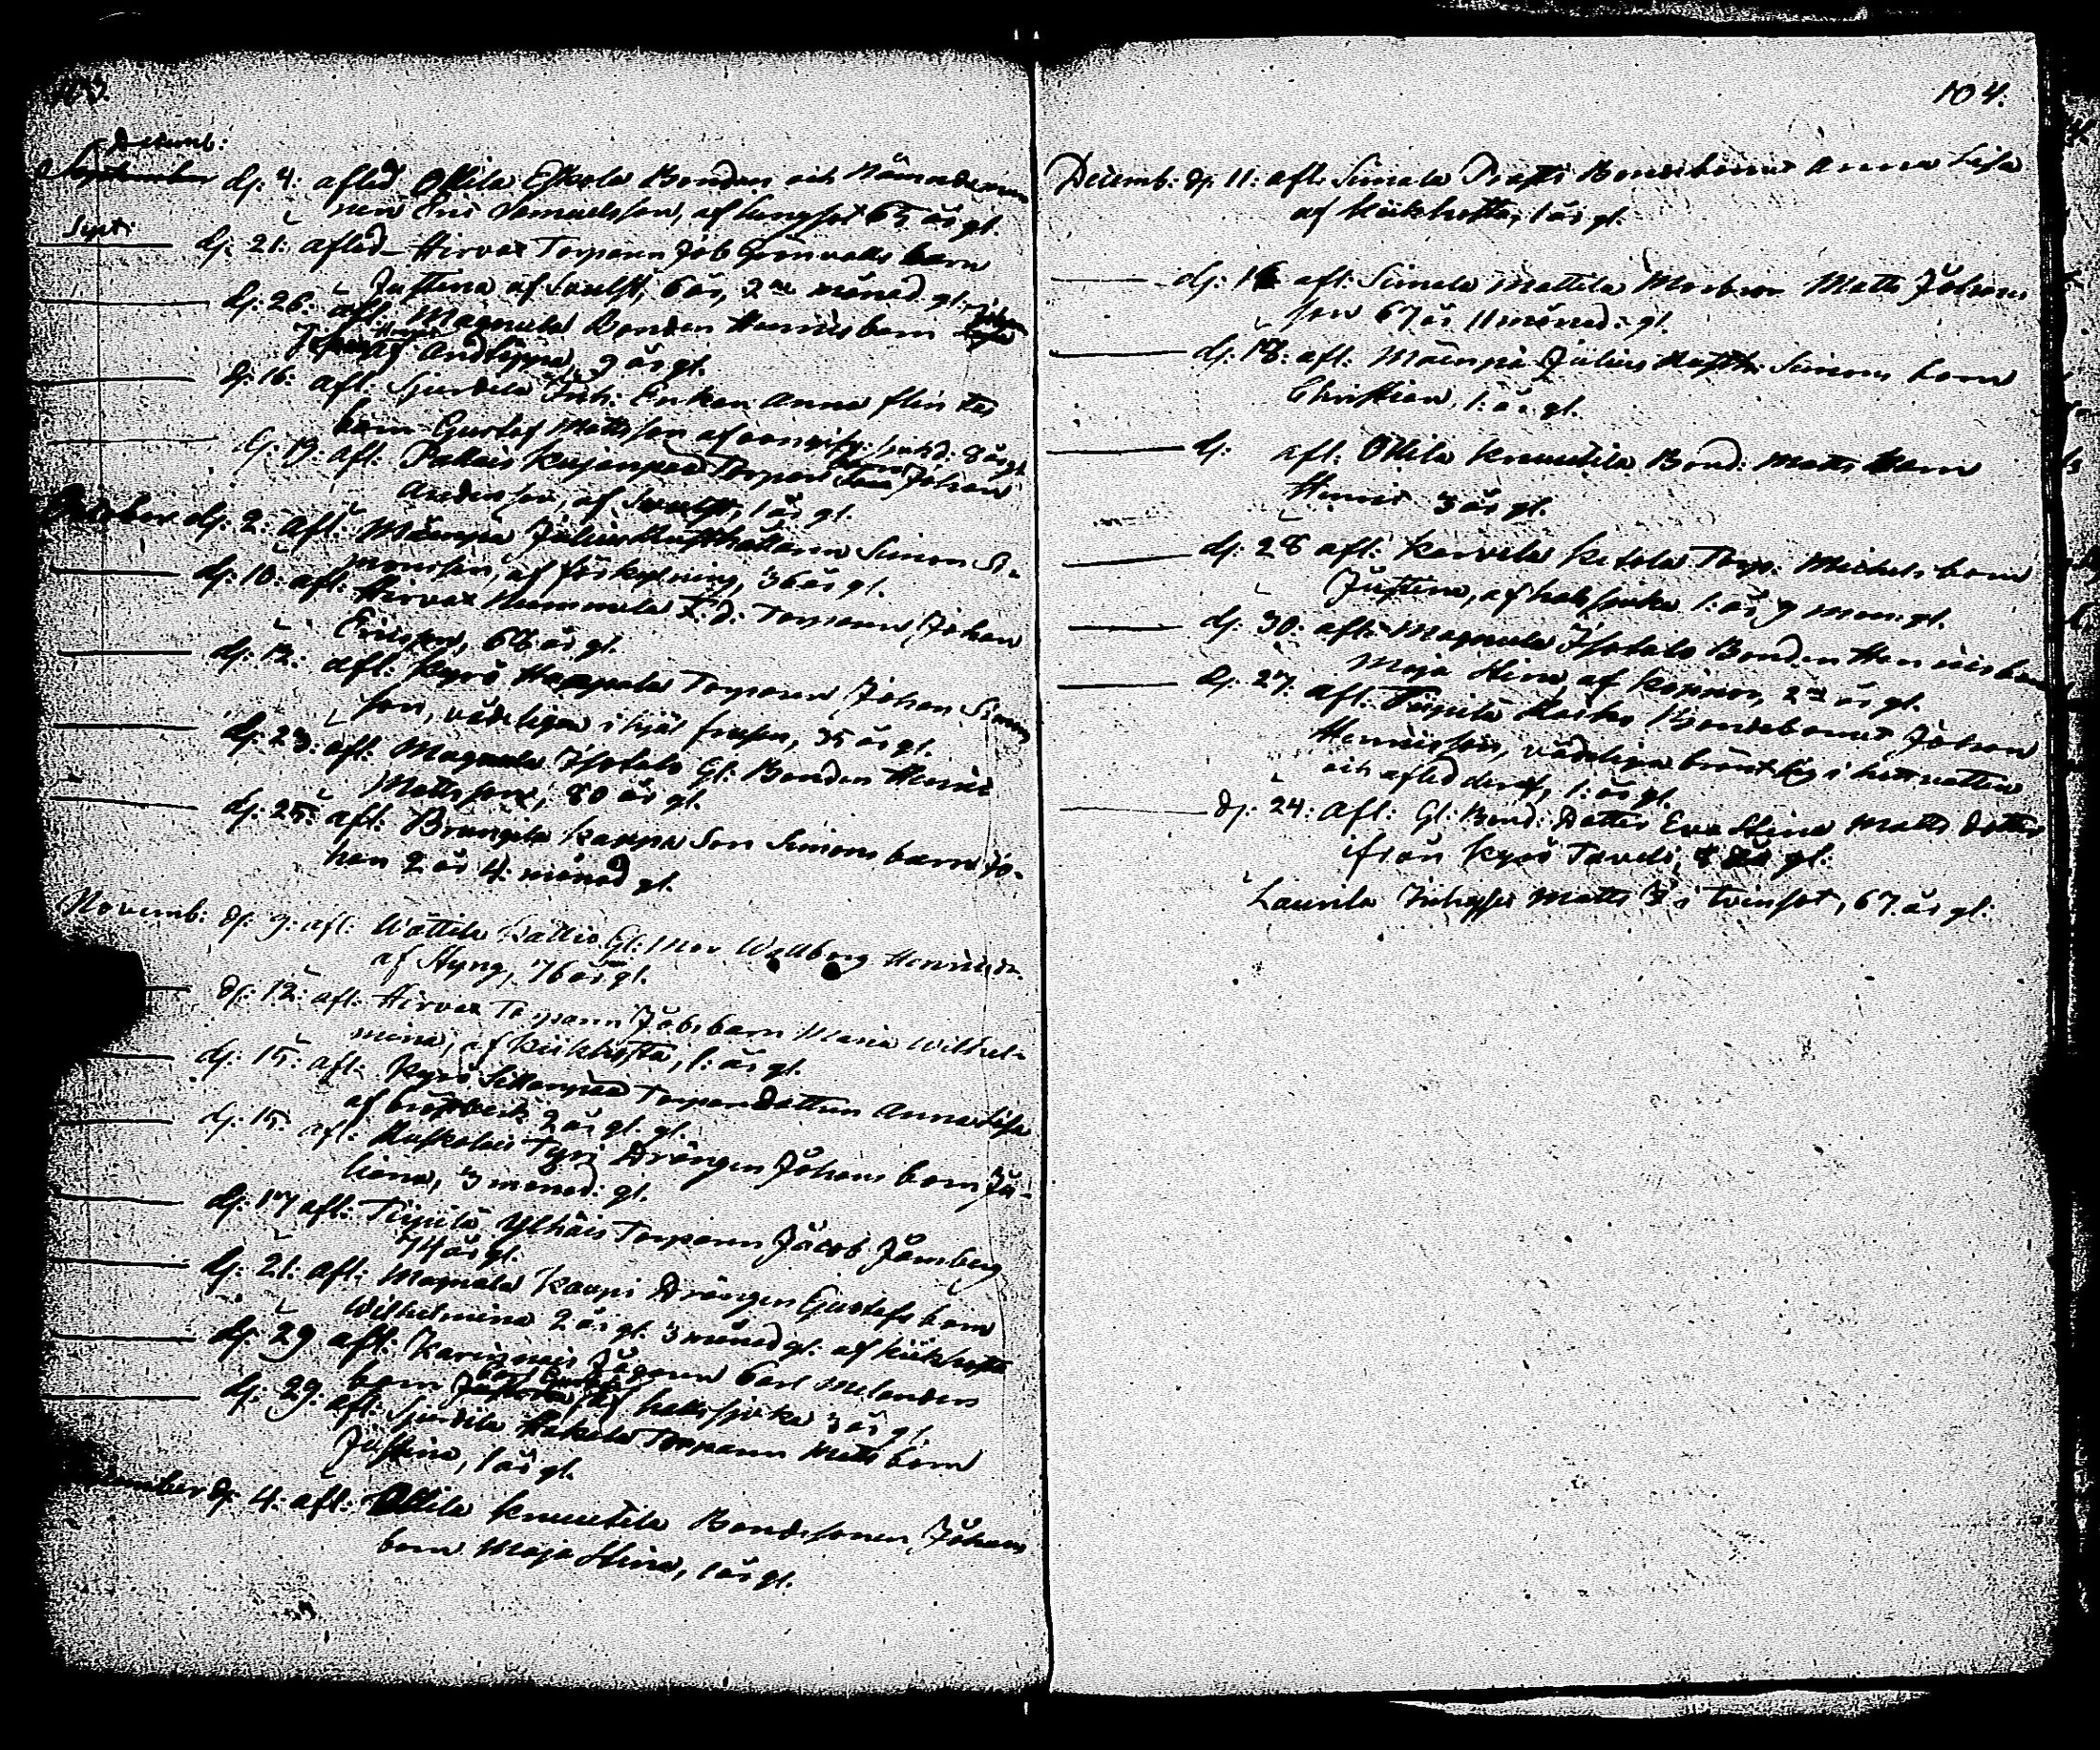 Decemb:
September dj: 4: afled Ottila Eskola Bonden och Nämndeman
nen Eric Samuelsson, af lungsot 65 år gl.
Sept: dj: 21: afled Hirvax Torparen Job Grönvalls barn
Justina af Svulst, 6 år, 2 månad. gl.
dj: 26: afl: Magnula Bonden Henrics barn
af Andtäppa, 9 år gl.
dj: 16: afl: Sjurdila Inh: Enkan Anna
barn Gustaf Mattsson af 8 år gl.
dj: 19: afl: Pallais Kujanpää Torpar Johan
af Svulst, 1 år gl.
October dj: 2: Afl: Mäenpä Julius Rusthållaren Simon Si-
monsson, af förkylning, 36 år gl.
dj: 10: afl: Hirvax Nummela F. d. Torparen Johan
Ericsson, 68 år gl.
dj: 12: afl: Kyrö Heppala Torparen Johan Simons
son, vådeligen ihjäl frusen, 35 år gl.
dj: 23: afl: Magnula Isotalo Gl: Bonden Henric
Mattsson, 80 år gl.
dj: 25: afl: Brungila Kauppa Son Simons barn Jo-
han 2 år 4: månad gl.
Novemb: dj: 9: afl: Wättilä Kallio Gl: Mor Wallborg Henricsdr
af Styng, 76 år gl.
dj: 12: afl: Hirvax Torparen Jobs barn Maria Wilhel-
mina, af Kikhosta, 1: år gl.
dj: 15: afl: Kyrö Sillanpää Torpardottren Anna Lisa
af 2 år gl. gl.
dj: 15: afl: Ruskolais Tyri Drängen Johans barn Ju-
liana, 3 månad: gl.
dj: 17 afl: Pirpilä Ylhäis Torparen Jacob Jernberg
74 år gl.
dj: 21: afl: Magnula Kauppi Drängen Gustafs barn
Wilhelmina 2 år gl. 3 månad gl: af Kikhosta
dj: 29 afl: Karinais Jägaren Carl Melanders
barn af halssjuka 3 år gl.
dj: 29: afl: Sjurdila Hakula Torparen Matts barn
Justina, 1 år gl.
December dj: 4: afl: Ottila Knuutila Bondesonen Johans
barn Maja Stina, 1 år gl.
104.
Decemb: dj. 11: afl: Simala Prasti Bondebarnet Anna Lisa
af Kikhosta, 1 år gl.
dj: 16 afl: Simala Mattila Morbror Matts Johans
son 67 år 11 månad: gl.
dj: 18: afl: Mäenpä Julius Rusth: Simons barn
Christian, 1: år gl.
dj: afl: Ottila Knuutila Bond: Matts barn
Henric 3 år gl.
dj: 28 afl: Karvela Ketola Torp: Michels barn
Justina, af halssjuka 1: år 9 mån: gl.
dj: 30: afl: Magnula Isotalo Bonden Henrics barn
Maja Stina af Koppor, 2 år gl.
dj. 27: afl: Pirpilä Kaisko Bondebarnet Johan
Henricsson, vådeligen bränt sig i hett vatten
och afled deraf, 1: år gl.
dj: 24: Afl: Gl: Bond: Dotter Eva Stina Matts Dotter
ifrån Kyrö Taveli, gl:
Laurila Inhyses Matts i tvinsot, 67. år gl: